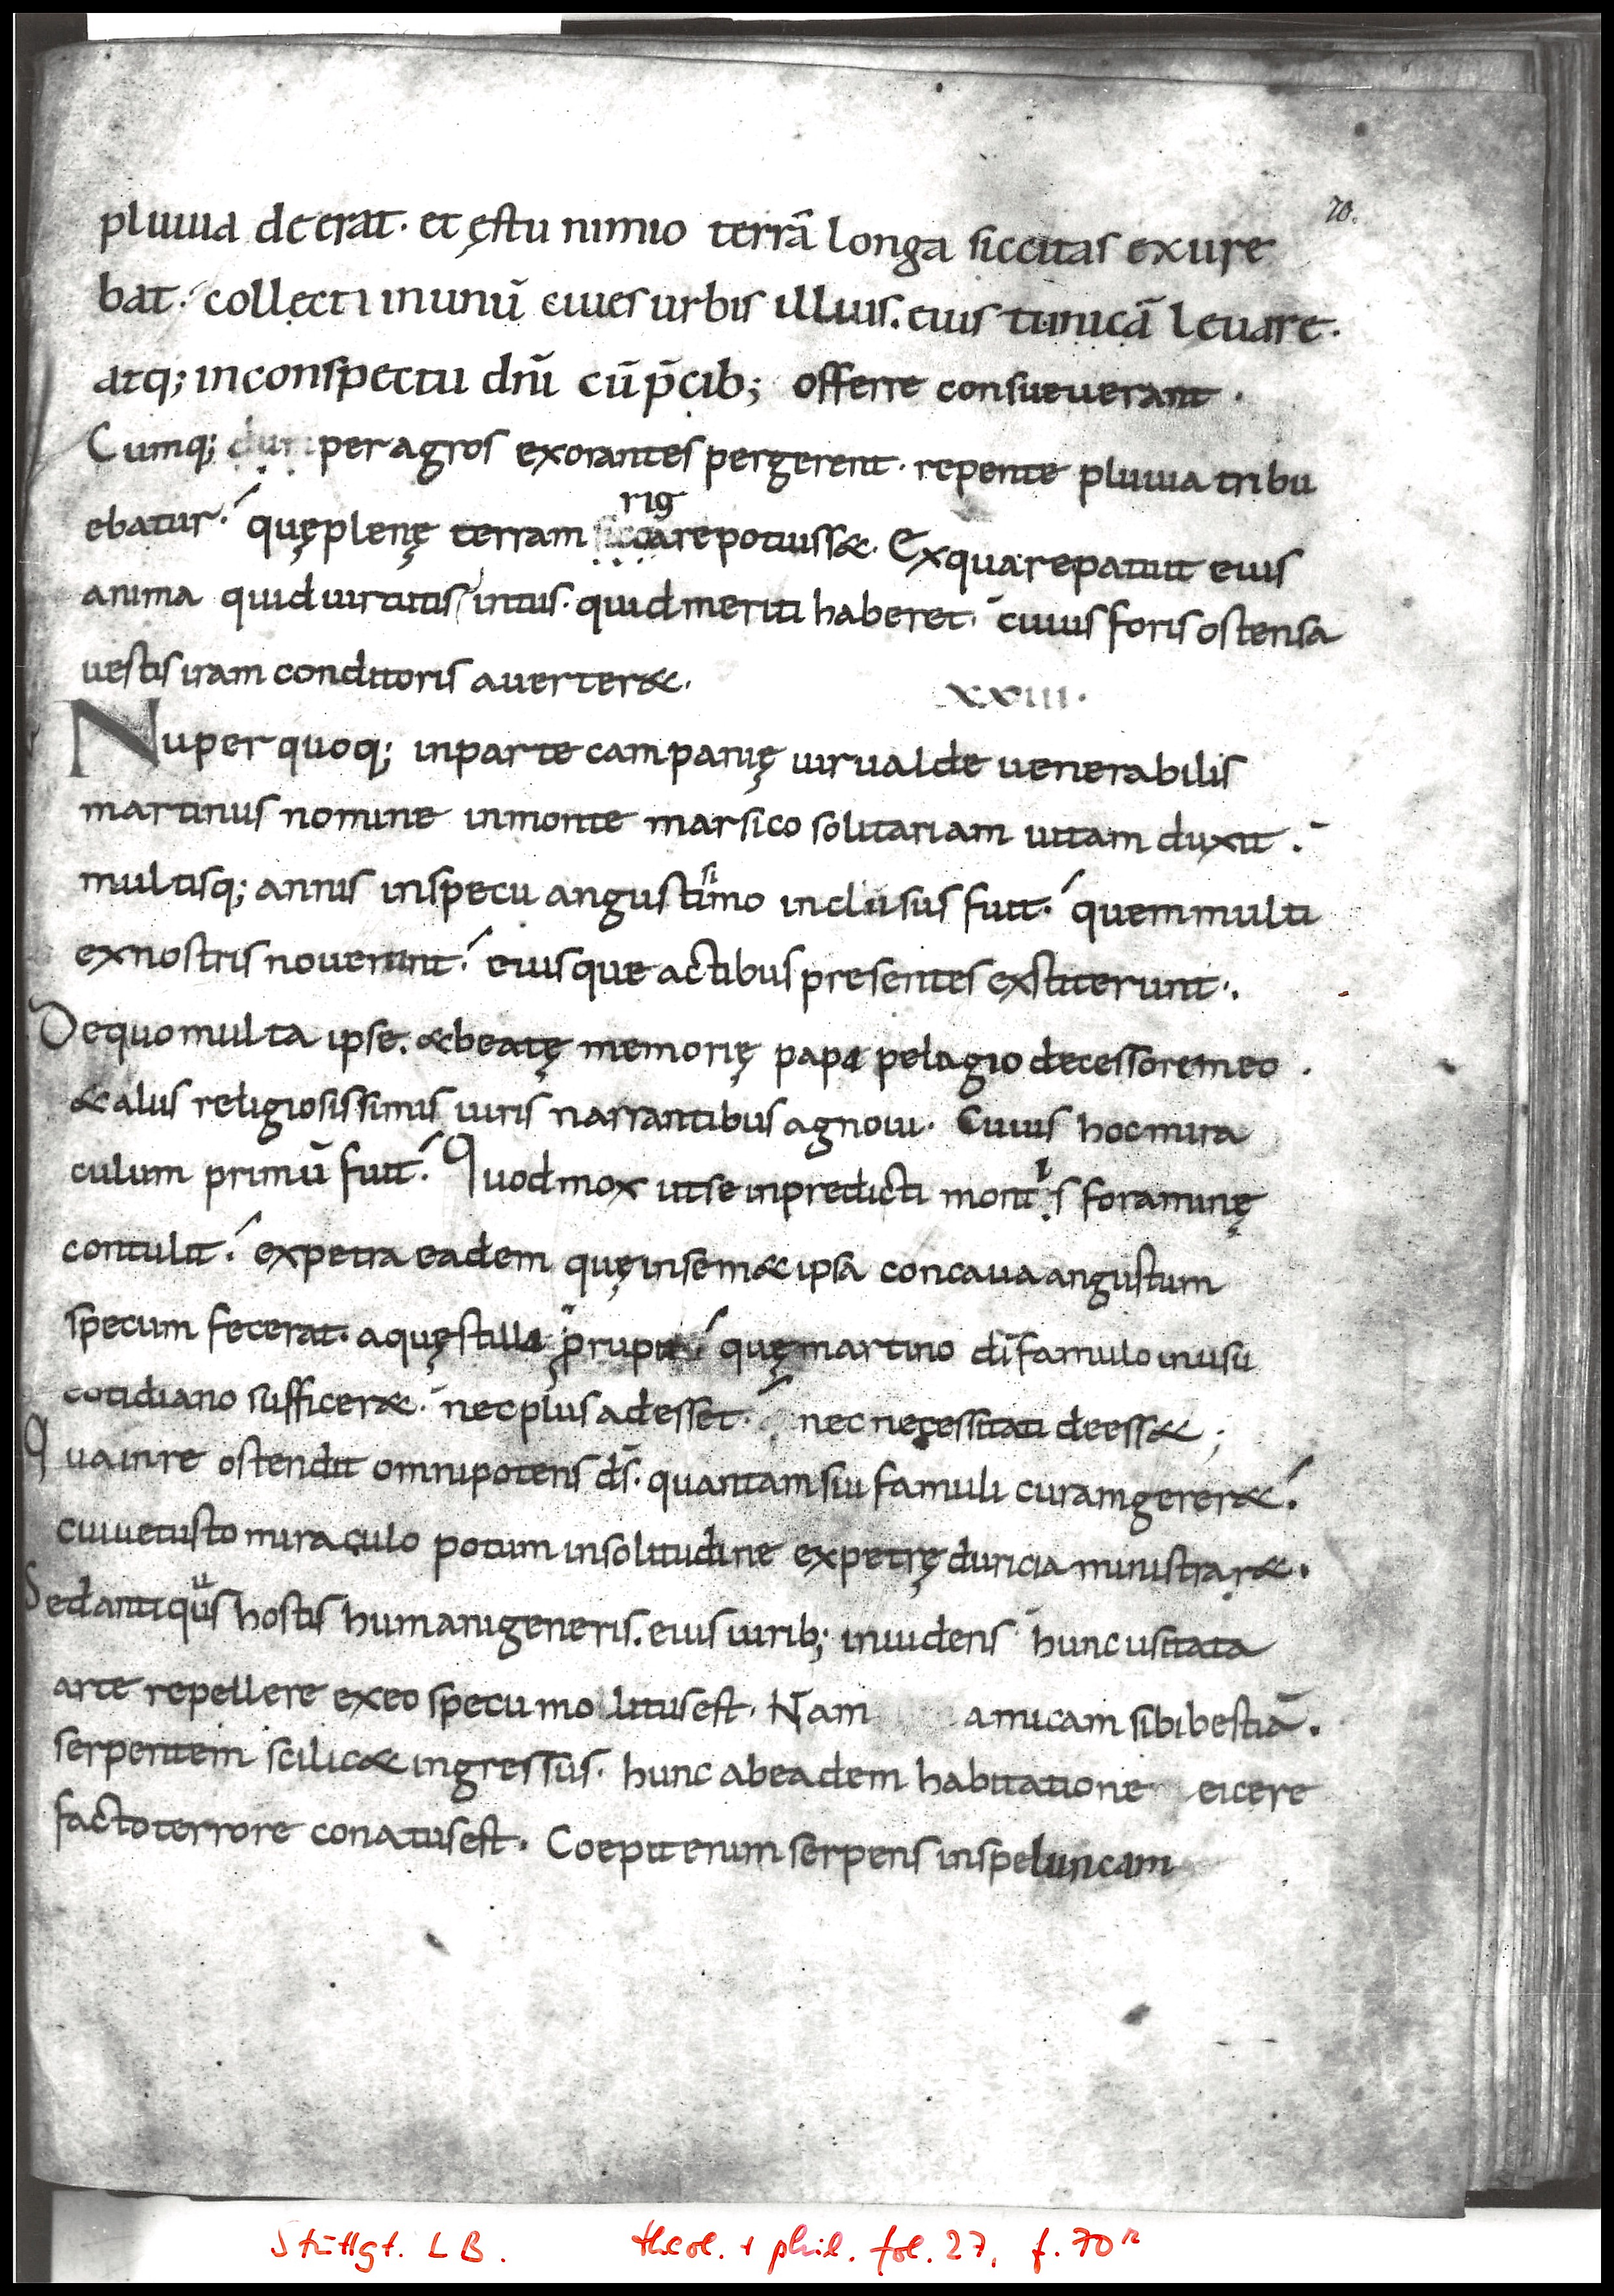 70.
pluuia deerat· et ęstu nimio terrā longa siccitas exure
bat· collecti inunū ciues urbis illius. eius tunicā leuare·
atq; inconspectu dn̄i cū p̄cib; offerre consueuerant·
Cumq; dum per agros exorantes pergerent· repente pluuia tribu
rig
ebatur· quę plenę terram siccare potuiss&· Exqua re patuit eius
anima quid uirtutis intus· quid meriti haberet· cuius foris ostensa
uestis iram conditoris auerter&·
XXIII·
Nuper quoq; inparte campanię uir ualde uenerabilis
martinus nomine inmonte marsico solitariam uitam duxit·
multisq; annis inspecu angustisimo inclusus fuit· quem multi
exnostris nouerunt· eiusque actibus presentes exstiterunt·
Dequo multa ipse. & beatę memorię papa pelagio decessore meo·
& aliis religiosissimis uiris narrantibus agnoui· Cuius hoc mira
culum primū fuit· Quod mox ut se inpredicti montis foraminę
contulit· expetra eadem quę insem&ipsā concaua angustum
specum fecerat· aquę stilla prupit· quę martino dī famulo inusu
cotidiano sufficer&· nec plus adesset· nec necessitati deess&;
Qua inre ostendit omnipotens ds̄· quantam sui famuli curam gerer&·
cui uetusto miraculo potum insolitudine expetrę duricia ministrar&·
Sed antiquus hostis humani generis. eius uirib; inuidens hunc usitata
arte repellere exeo specu molitus est· Nam amicam sibi bestiā·
serpentem scilic& ingressus· hunc abeadem habitatione eicere
facto terrore conatus est· Coepit enim serpens inspeluncam
Stuttgt. LB. theol. + phil. fol. 27, f. 70r